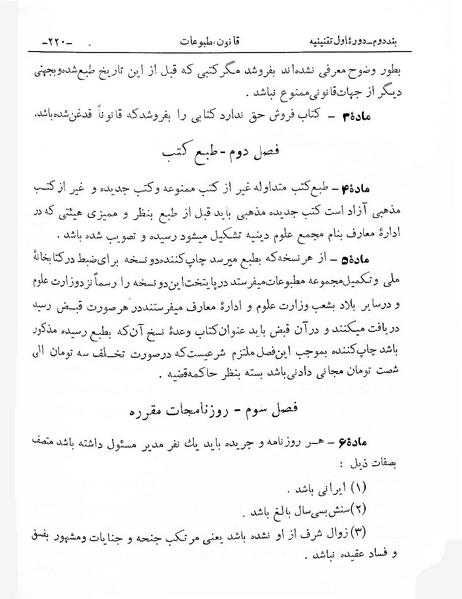 بند دوم ـ دورهٔ اول تقنینیه    قانون مطبوعات    ـ۲۲۰ـ
بطور وضوح معرفی نشده‌اند بفروشد مگر کتبی که قبل از این تاریخ طبع شده و بجهتی
دیگر از جهات قانونی ممنوع نباشد .
مادهٔ ۳ ـ کتاب فروش حق ندارد کتابی را بفروشد که قانوناً قدغن شده باشد.
فصل دوم - طبع کتب
مادهٔ ۴ ـ طبع کتب متداوله غیر از کتب ممنوعه و کتب جدیده و غیر از کتب
مذهبی آزاد است کتب جدیده مذهبی باید قبل از طبع بنظر و ممیزی هیئتی که در
ادارهٔ معارف بنام مجمع علوم دینیه تشکیل میشود رسیده و تصویب شده باشد .
مادهٔ ۵ ـ از هر نسخه که بطبع میرسد چاپ کننده دو نسخه برای ضبط در کتابخانهٔ
ملی و تکمیل مجموعه مطبوعات میفرستد در پایتخت این دو نسخه را رسماً نزد وزارت علوم
و در سایر بلاد بشعب وزارت علوم و ادارهٔ معارف میفرستند در هر صورت قبض رسید
دریافت میکنند و در آن قبض باید عنوان کتاب و عدهٔ نسخ آن که بطبع رسیده مذکور
باشد چاپ کننده بموجب این فصل ملتزم شرعیست که در صورت تخلف سه تومان الی
شصت تومان مجانی دادنی باشد بسته بنظر حاکمه قضیه .
فصل سوم - روزنامجات مقرره
مادهٔ ۶ ـ هر روزنامه و جریده باید یك نفر مدیر مسئول داشته باشد متصف
بصفات ذیل :
(۱) ایرانی باشد .
(۲) سنش بسی سال بالغ باشد .
(۳) زوال شرف از او نشده باشد یعنی مرتکب جنحه و جنایات و مشهور بفسق
و فساد عقیده نباشد .